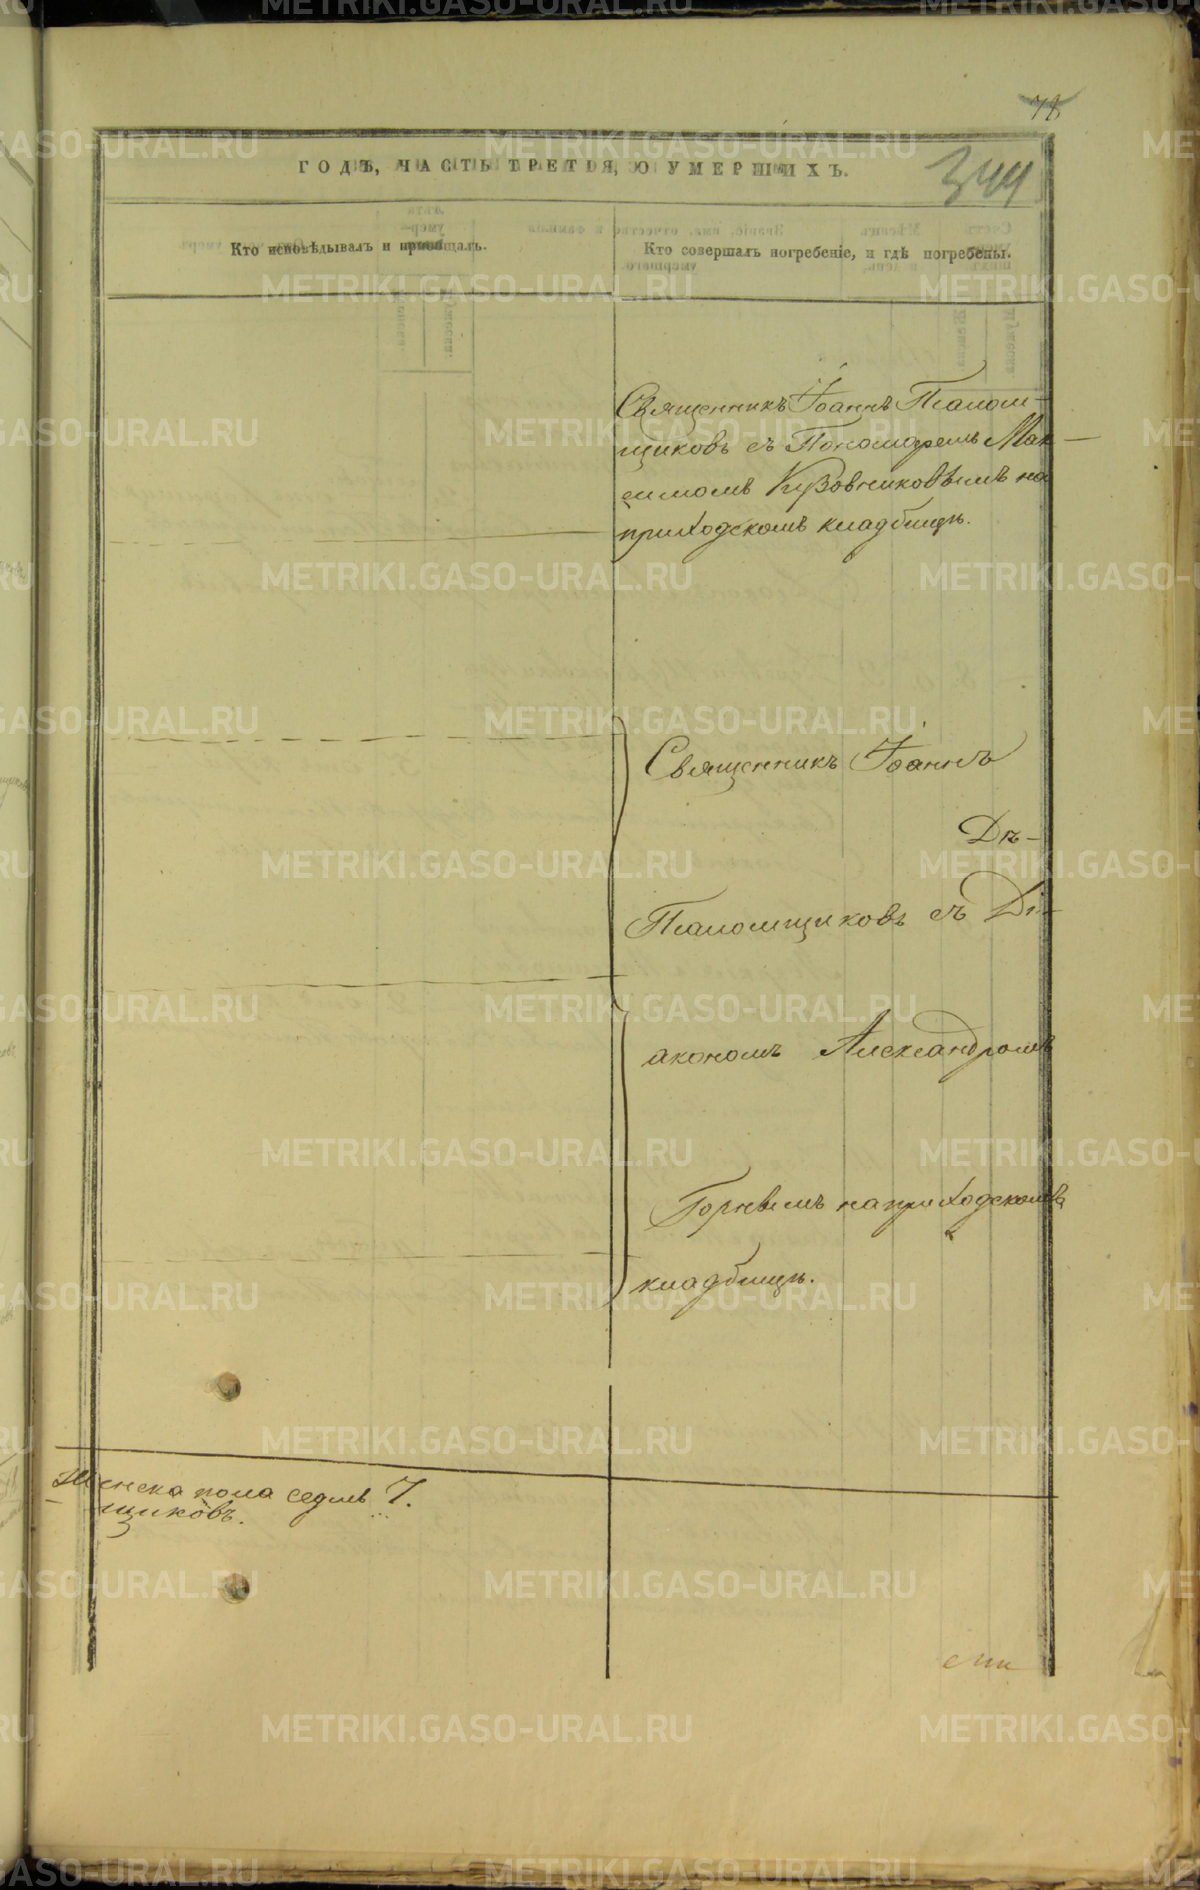 78
344
ГОДЪ, ЧАСТЬ ТРЕТІЯ, О УМЕРШИХЪ.
Кто исповѣдывалъ и пріобщалъ.
Кто совершалъ погребеніе, и гдѣ погребены.
Священникъ Іоаннъ Псалом-
щиковъ съ Пономаремъ Мак-
симомъ Кузовниковымъ на
приходскомъ кладбищѣ.
Священникъ Іоаннъ
Дь-
Псаломщиковъ съ Ді-
акономъ Александромъ
Горнымъ на приходскомъ
кладбищѣ.
Женска пола седмь 7.
щиковъ.
METRIKI.GASO-URAL.RU